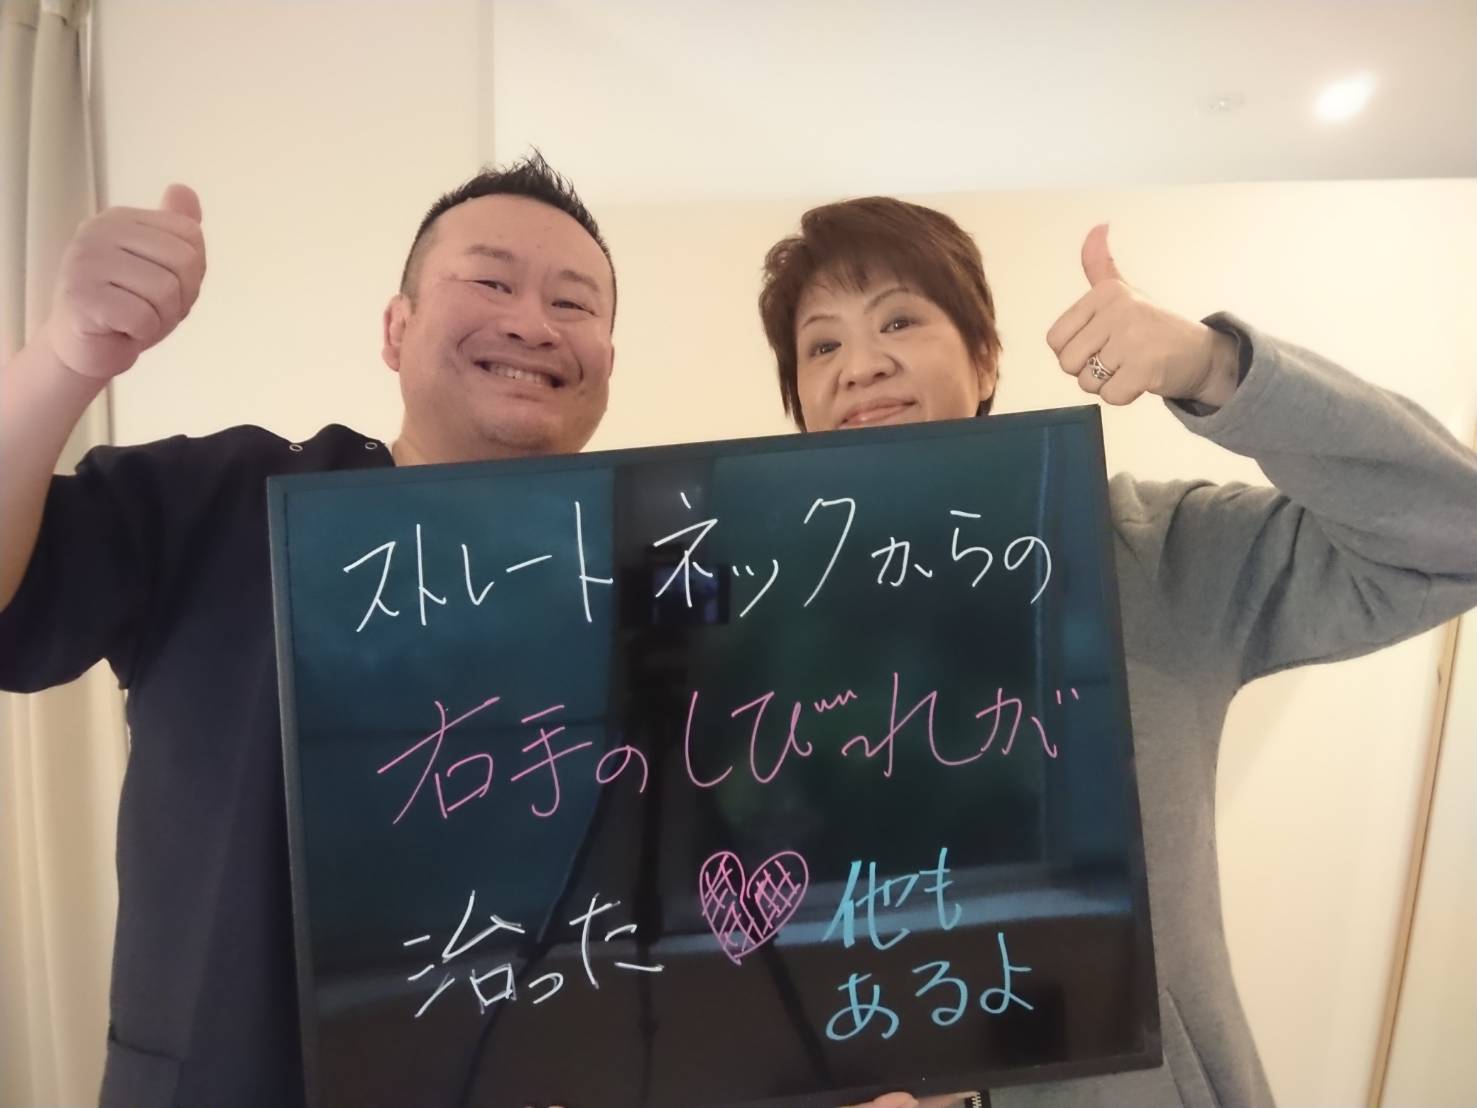 ストレートネックからの
右手のしびれが
治った 他も
あるよ